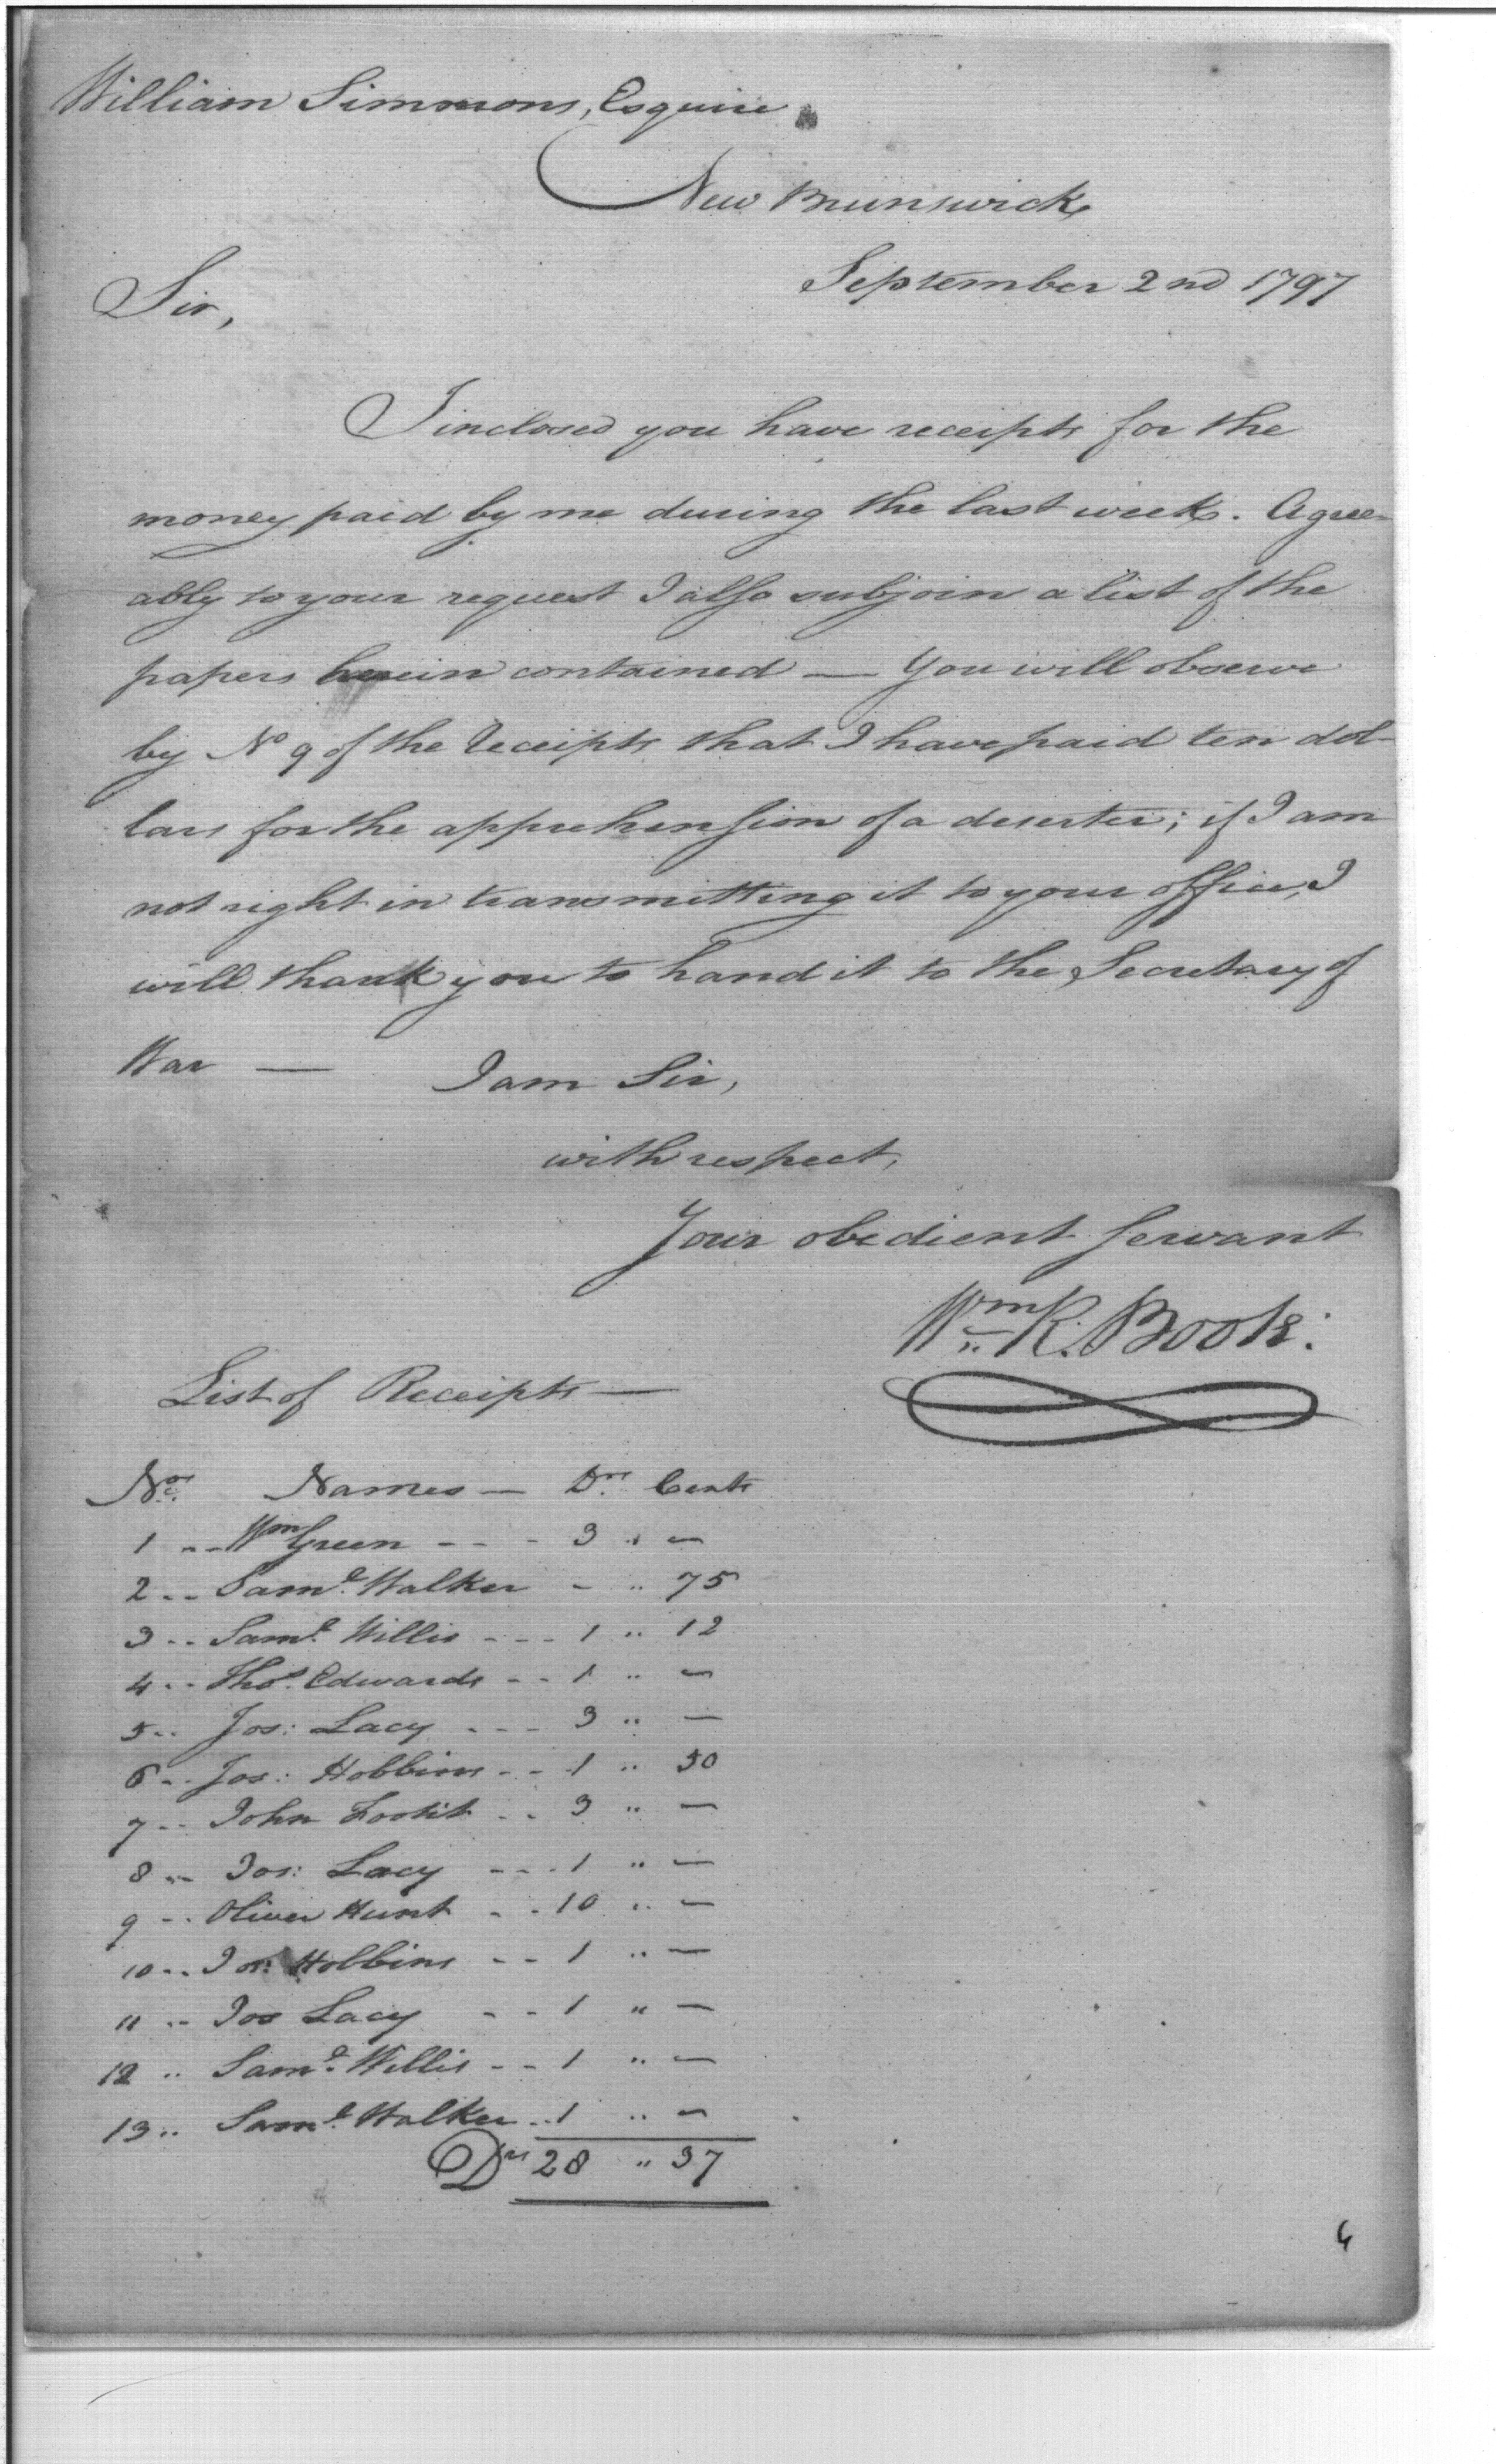 William Simmons, Esquire
New Brunswick,
September 2nd 1797
Sir,
Inclosed you have receipts for the
money paid by me during the last week. Agree-
ably to your request I also subjoin a list of the
papers herein contained — You will observe
by No 9 of the receipts that I have paid ten dol-
lars for the apprehension of a deserter; if I am
not right in transmitting it to your office, I
will thank you to hand it to the Secretary of
War —
I am Sir,
with respect,
Your obedient Servant
Wm K.
List of Receipts —
Nos. Names — Drs. Cents
1 -- Wm Green - - - 3 " —
2 -- Saml. Walker - " 75
3 -- Saml. Willis - - - 1 " 12
4 -- Thos. Edwards - - 1 " —
5 -- Jos: Lacy - - - 3 " —
6 -- Jos: Hobbins - - 1 " 50
7 -- John - - 3 " —
8 -- Jos: Lacy - - - 1 " —
9 -- Oliver Hunt - - 10 " —
10 -- Jos: Hobbins - - 1 " —
11 -- Jos Lacy - - 1 " —
12 " Saml. Willis - - 1 " —
13 " Saml. Walker -- 1 " —
Drs 28 " 37